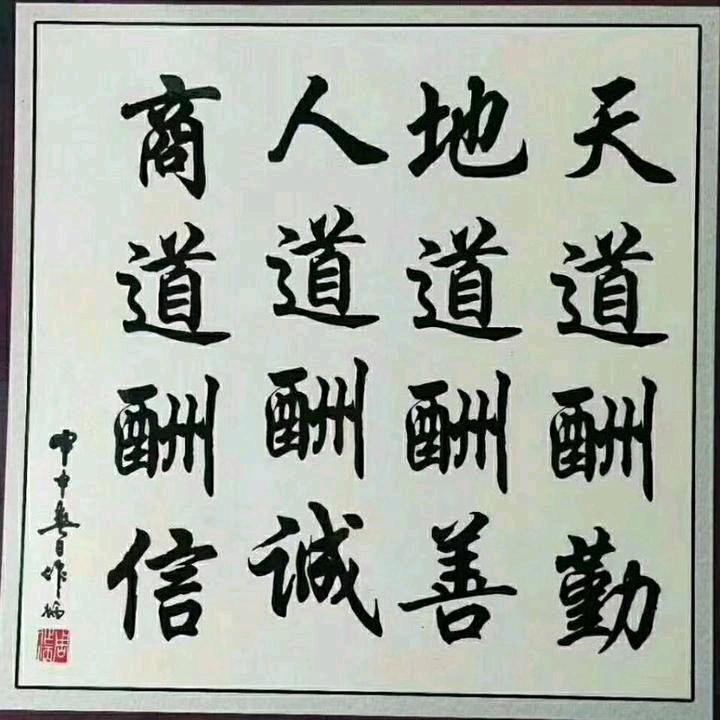 天道酬勤
地道酬善
人道酬誠
商道酬信